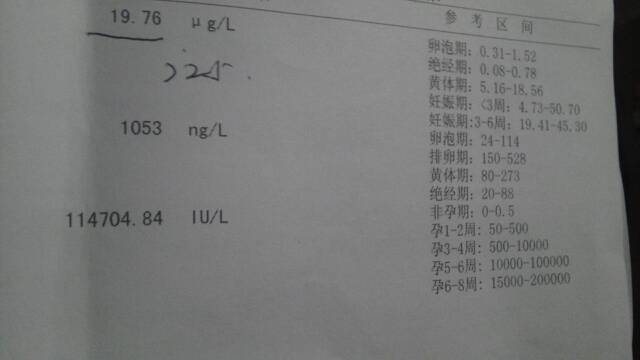 参考区间
19.76 μg/L
卵泡期: 0.31-1.52
绝经期: 0.08-0.78
黄体期: 5.16-18.56
妊娠期: <3周: 4.73-50.70
妊娠期:3-6周: 19.41-45.30
1053 ng/L
卵泡期: 24-114
排卵期: 150-528
黄体期: 80-273
绝经期: 20-88
114704.84 IU/L
非孕期: 0-0.5
孕1-2周: 50-500
孕3-4周: 500-10000
孕5-6周: 10000-100000
孕6-8周: 15000-200000